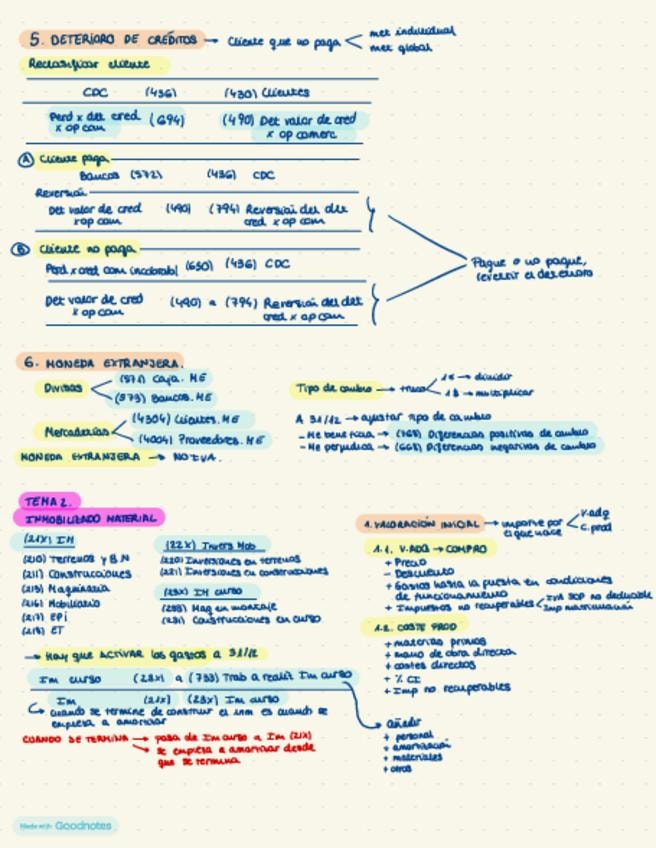 5. DETERIORO DE CRÉDITOS → Cliente que no paga < met individual
met global
Reclasificar cliente
CDC (436) (430) Clientes
Perd x det cred (694) (490) Det valor de cred
x op com x op comerc
A Cliente paga
Bancos (572) (436) CDC
Reversión
Det valor de cred (490) (794) Reversión del det
x op com cred x op com
B Cliente no paga
Perd x cred com incobrabl (650) (436) CDC
Pague o no pague,
revertir el deterioro
Det valor de cred (490) a (794) Reversión del det
x op com cred x op com
6. MONEDA EXTRANJERA.
Divisas < (571) Caja. ME
(573) Bancos. ME
Mercaderías < (4304) Clientes. ME
(4004) Proveedores. ME
MONEDA EXTRANJERA → NO IVA.
Tipo de cambio → truco < 1€ → dividir
1$ → multiplicar
A 31/12 → ajustar tipo de cambio
- Me beneficia → (768) Diferencias positivas de cambio
- Me perjudica → (668) Diferencias negativas de cambio
TEMA 2.
INMOBILIZADO MATERIAL
(21X) IM
(210) Terrenos y B.N
(211) Construcciones
(213) Maquinaria
(216) Mobiliario
(217) EPI
(218) ET
(22X) Invers Mob
(220) Inversiones en terrenos
(221) Inversiones en construcciones
(23X) IM curso
(233) Maq en montaje
(231) Construcciones en curso
→ Hay que activar los gastos a 31/12
Im curso (23x) a (733) Trab a realiz Im curso
Im (21x) (23x) Im curso
cuando se termine de construir el inm es cuando se
empieza a amortizar
CUANDO SE TERMINA → pasa de Im curso a Im (21x)
→ se empieza a amortizar desde
que se termina
1. VALORACIÓN INICIAL → importe por < V.adq
el que nace C.prod
1.1. V.ADQ → COMPRO
+ Precio
- Descuento
+ Gastos hasta la puesta en condiciones
de funcionamiento
+ Impuestos no recuperables < IVA SOP no deducible
Imp matriculación
1.2. COSTE PROD
+ materias primas
+ mano de obra directa
+ costes directos
+ % CI
+ Imp no recuperables
añadir
+ personal
+ amortización
+ materiales
+ otros
Made with Goodnotes